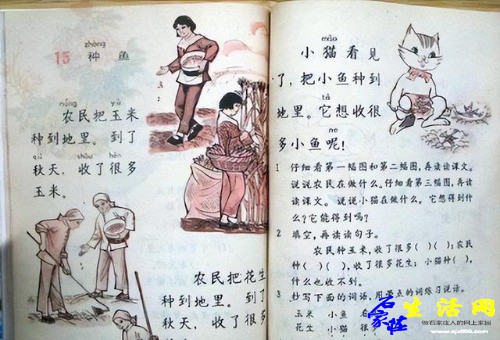 zhòng
15 种 鱼
nóng yù
农民把玉米
种到地里。到了
qiū shōu hěn
秋天，收了很多
玉米。
农民把花生
种到地里。到了
秋天，收了很多
māo
小猫看见
了，把小鱼种到
tā
地里。它想收很
ne
多小鱼呢！
1 仔细看第一幅图和第二幅图，再读读课文。
说说农民在做什么。仔细看第三幅图，再读
读课文。说说小猫在做什么。它想得到什
么？它能得到吗？
2 填空，再读读句子。
农民种玉米，收了很多( )( )；农民
种( )( )，收了很多花生；小猫种( )，
什么也收不到。
3 抄写下面的词语，用带点的词练习说话。
玉米 小鱼
花生 小猫 很
石家庄生活网
做石家庄人的网上家园